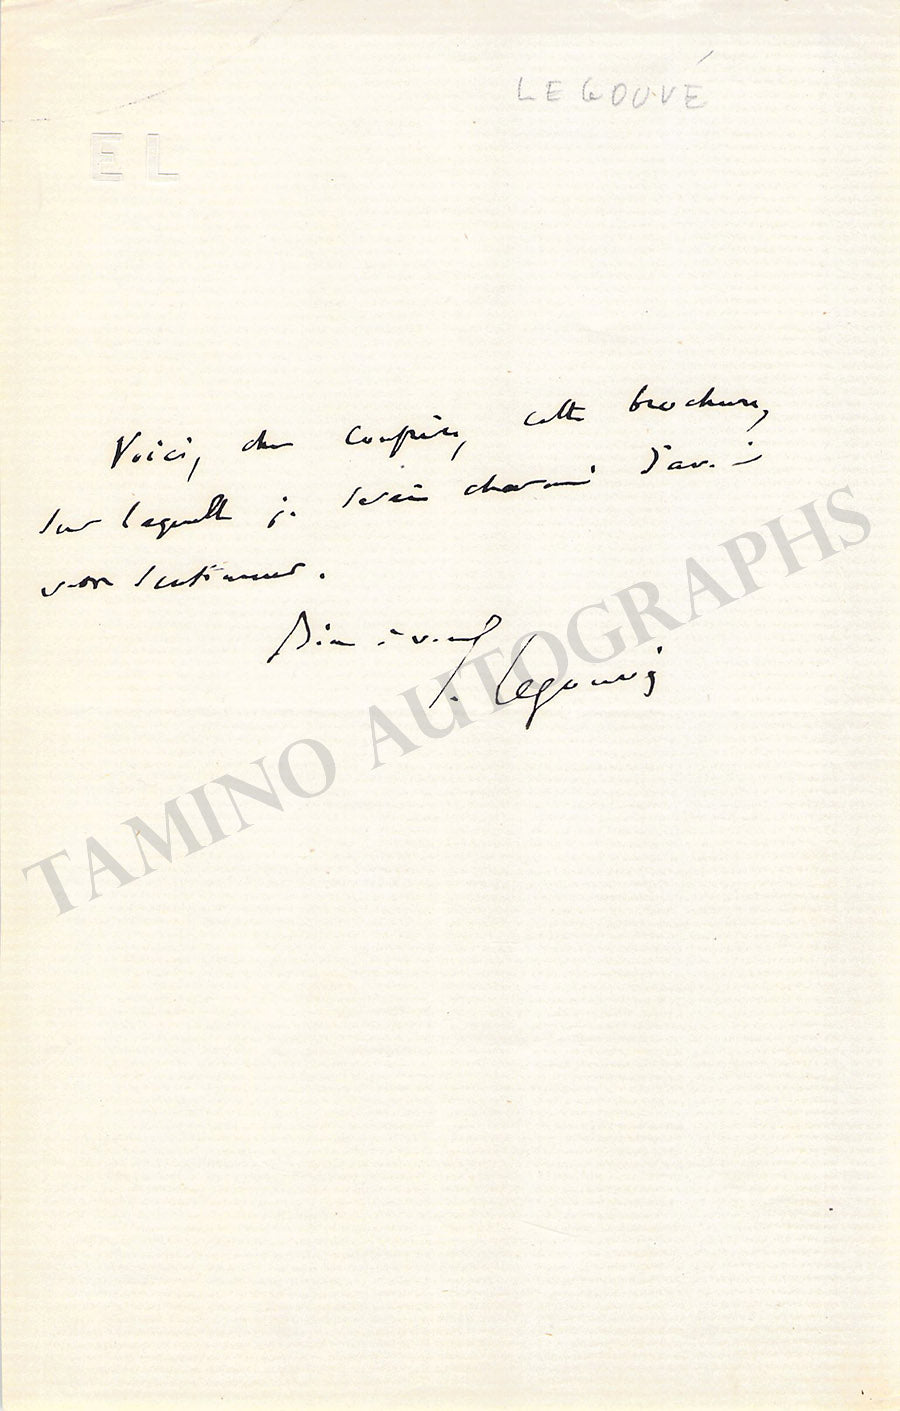 LEGOUVÉ
E L
Voici, cher confrère, cette brochure,
sur laquelle je serais charmé d'avoir
votre sentiment.
Bien à vous
E. Legouvé
TAMINO AUTOGRAPHS